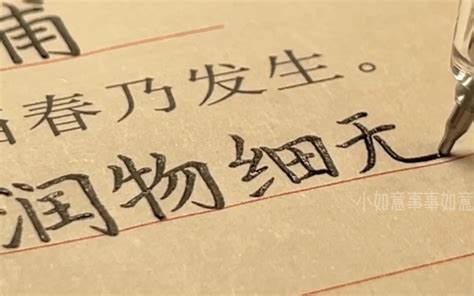 甫
春乃发生。
润物细无
小如意事事如意